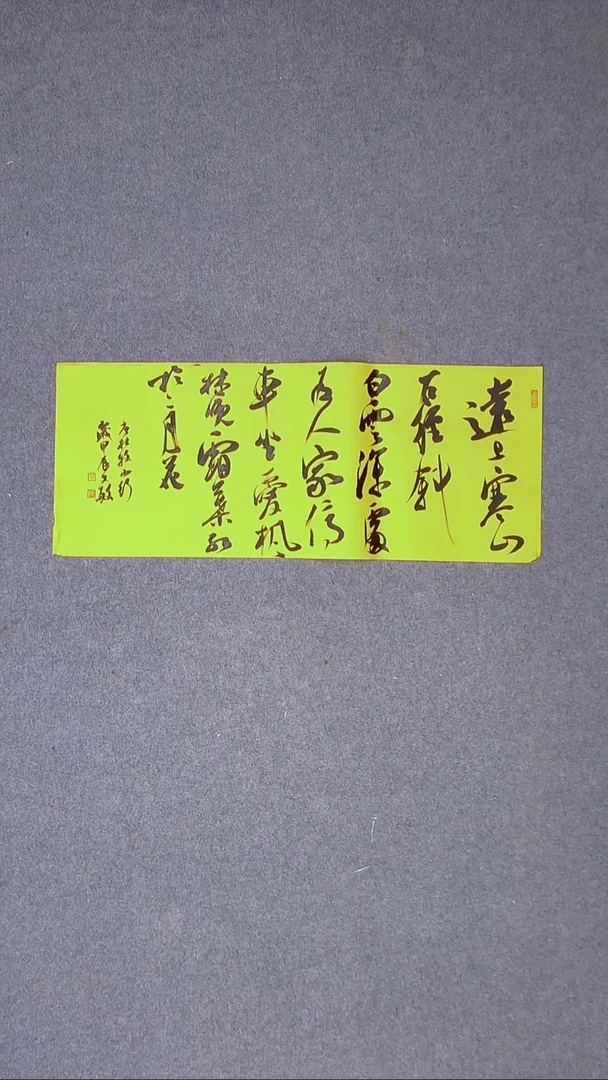 遠上寒山
石徑斜
白雲深處
有人家停
車坐愛楓
林晚霜葉紅
於二月花
唐杜牧山行
歲甲辰文